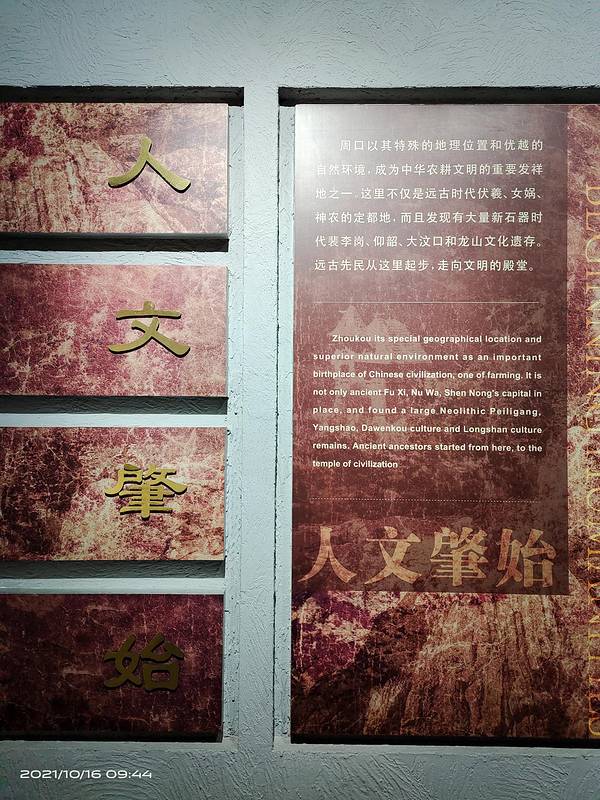 人
文
肇
始
周口以其特殊的地理位置和优越的
自然环境，成为中华农耕文明的重要发祥
地之一。这里不仅是远古时代伏羲、女娲、
神农的定都地，而且发现有大量新石器时
代裴李岗、仰韶、大汶口和龙山文化遗存。
远古先民从这里起步，走向文明的殿堂。
Zhoukou its special geographical location and
superior natural environment as an important
birthplace of Chinese civilization, one of farming. It is
not only ancient Fu Xi, Nu Wa, Shen Nong's capital in
place, and found a large Neolithic Peiligang,
Yangshao, Dawenkou culture and Longshan culture
remains. Ancient ancestors started from here, to the
temple of civilization
人文肇始
2021/10/16 09:44